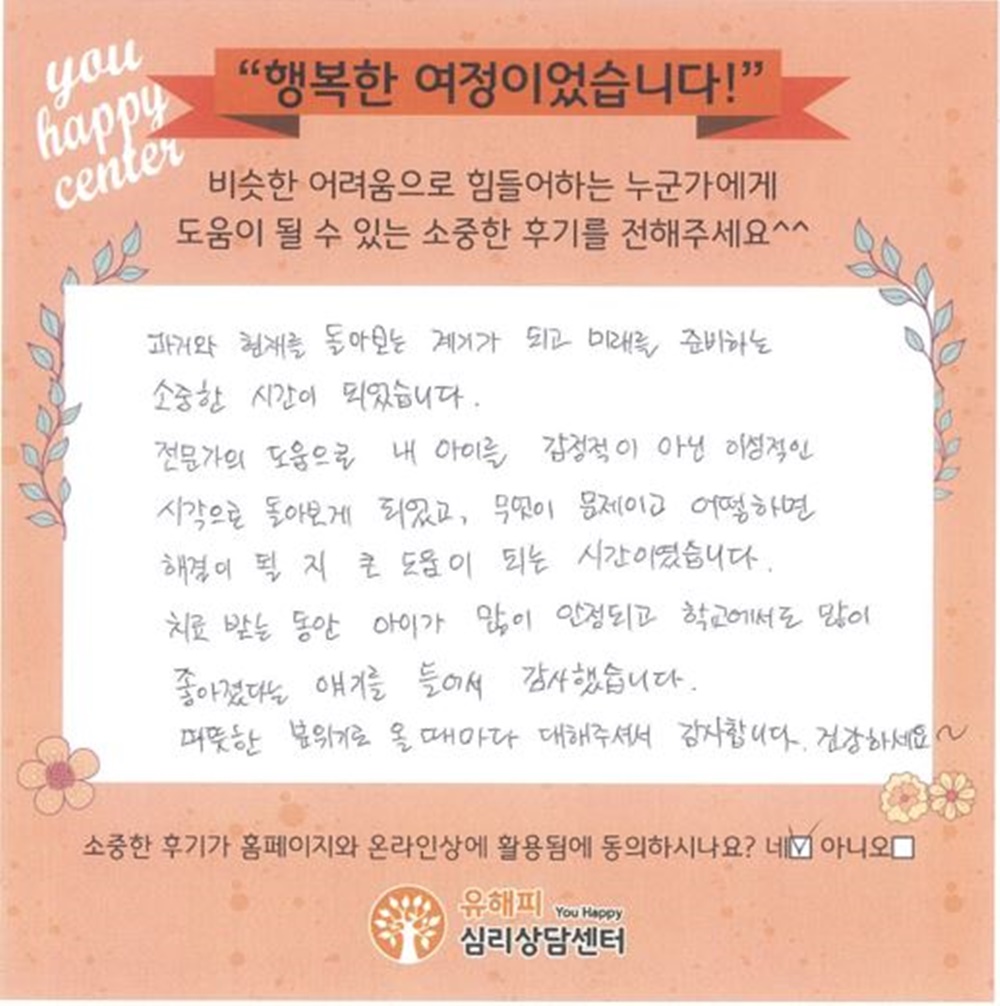 you
happy
center
“행복한 여정이었습니다!”
비슷한 어려움으로 힘들어하는 누군가에게
도움이 될 수 있는 소중한 후기를 전해주세요^^
과거와 현재를 돌아보는 계기가 되고 미래를 준비하는
소중한 시간이 되었습니다.
전문가의 도움으로 내 아이를 감정적이 아닌 이성적인
시각으로 돌아보게 되었고, 무엇이 문제이고 어떻하면
해결이 될 지 큰 도움이 되는 시간이였습니다.
치료 받는 동안 아이가 많이 안정되고 학교에서도 많이
좋아졌다는 얘기를 들어서 감사했습니다.
따뜻한 분위기로 올 때마다 대해주셔서 감사합니다. 건강하세요~
소중한 후기가 홈페이지와 온라인상에 활용됨에 동의하시나요? 네☑ 아니오☐
유해피 You Happy
심리상담센터